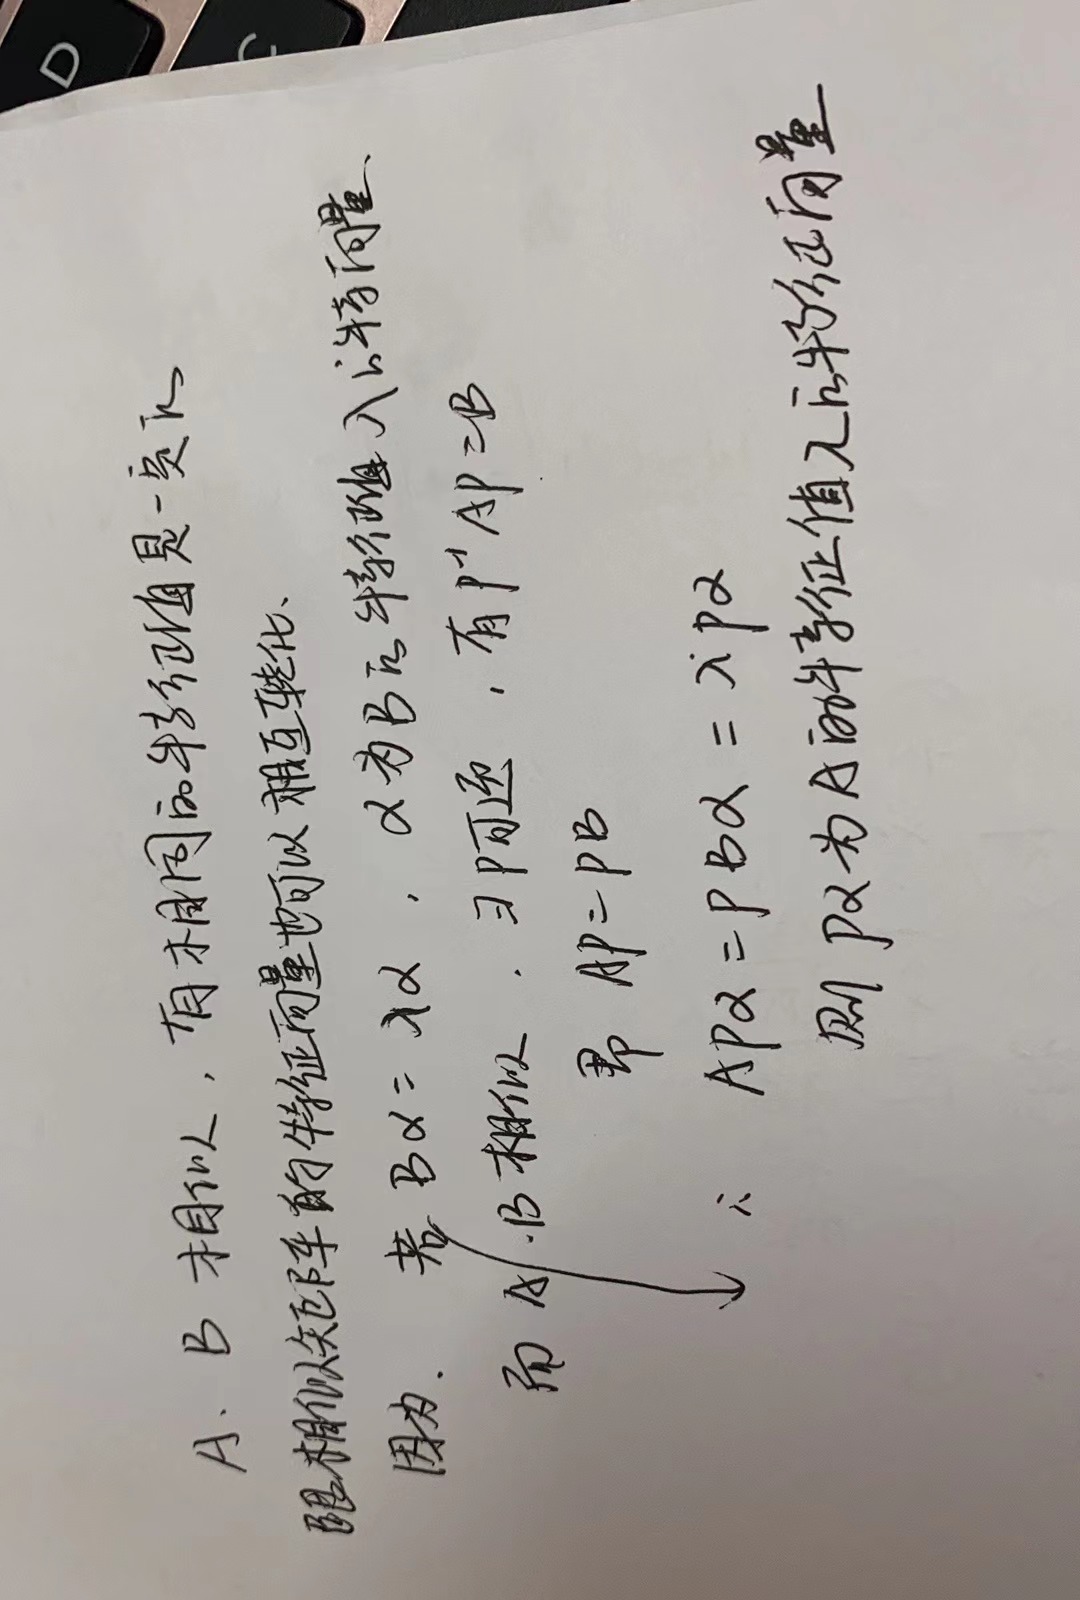 A、B 相似，有相同的特征值是一定的
跟相似矩阵有的特征向量也可以相互转化、
因为. 若 Bα=λα ，α为B的特征值λ的特向量、
而 A、B相似，∃P可逆，有P⁻¹AP=B
即 AP=PB
∴ APα=PBα=λPα
则 Pα为A的特征值λ的特征向量
D
C